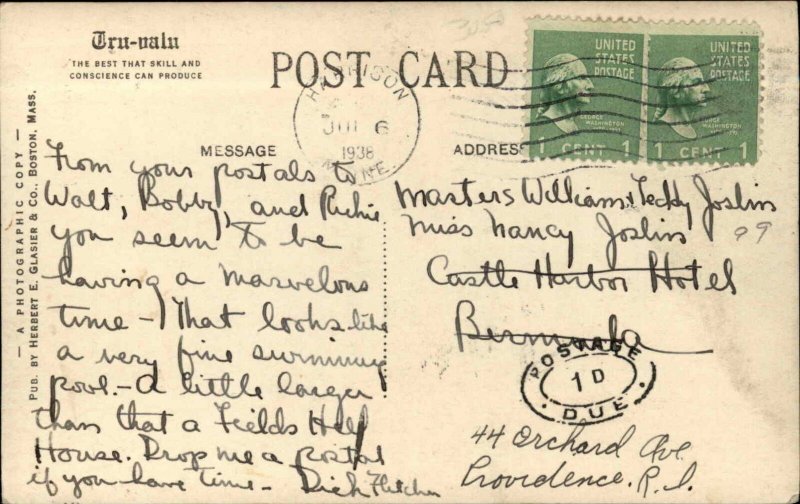 Tru-valu
THE BEST THAT SKILL AND
CONSCIENCE CAN PRODUCE
POST CARD
UNITED
STATES
POSTAGE
GEORGE
WASHINGTON
1 CENT 1
UNITED
STATES
POSTAGE
GEORGE
WASHINGTON
1 CENT 1
HARRISON
6
1938
MESSAGE
ADDRESS
— A PHOTOGRAPHIC COPY —
PUB. BY HERBERT E. GLASIER & CO., BOSTON, MASS.
From your postals to
Walt, Bobby, and Richie
you seem to be
having a marvelous
time - That looks like
a very fine swimming
pool. - A little larger
than that a Fields Hell
House. Drop me a postal
if you have time - Dick Fletcher
Masters William & Teddy Joslin
Miss Nancy Joslin
Castle Harbor Hotel
Bermuda
POSTAGE
1D
DUE
44 Orchard Ave.
Providence, R.I.